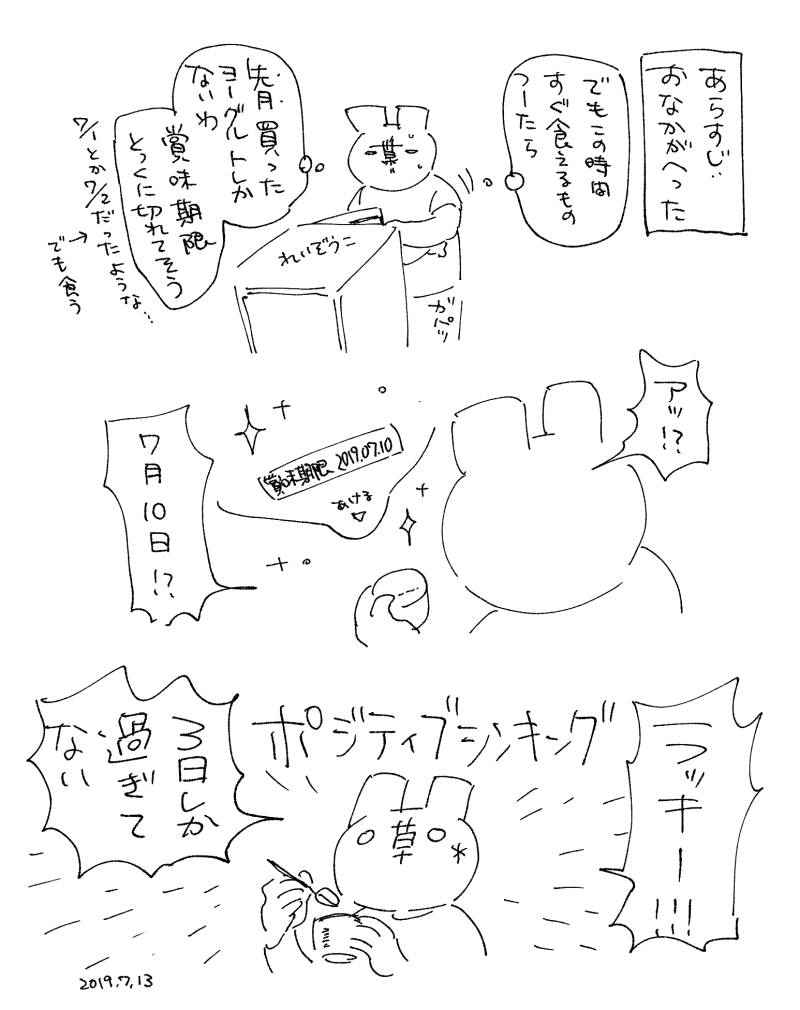 あらすじ:
おなかがへった
でもこの時間
すぐ食えるもの
つーたら
草
先月買った
ヨーグルトしか
ないわ
賞味期限
とっくに切れてそう
7/1とか7/2だったような…
→でも食う
れいぞうこ
ガパッ
アッ!?
賞味期限 2019.07.10
あける
7月10日!?
ラッキー!!!
ポジティブシンキング
3日しか
過ぎて
ない
草
2019.7.13